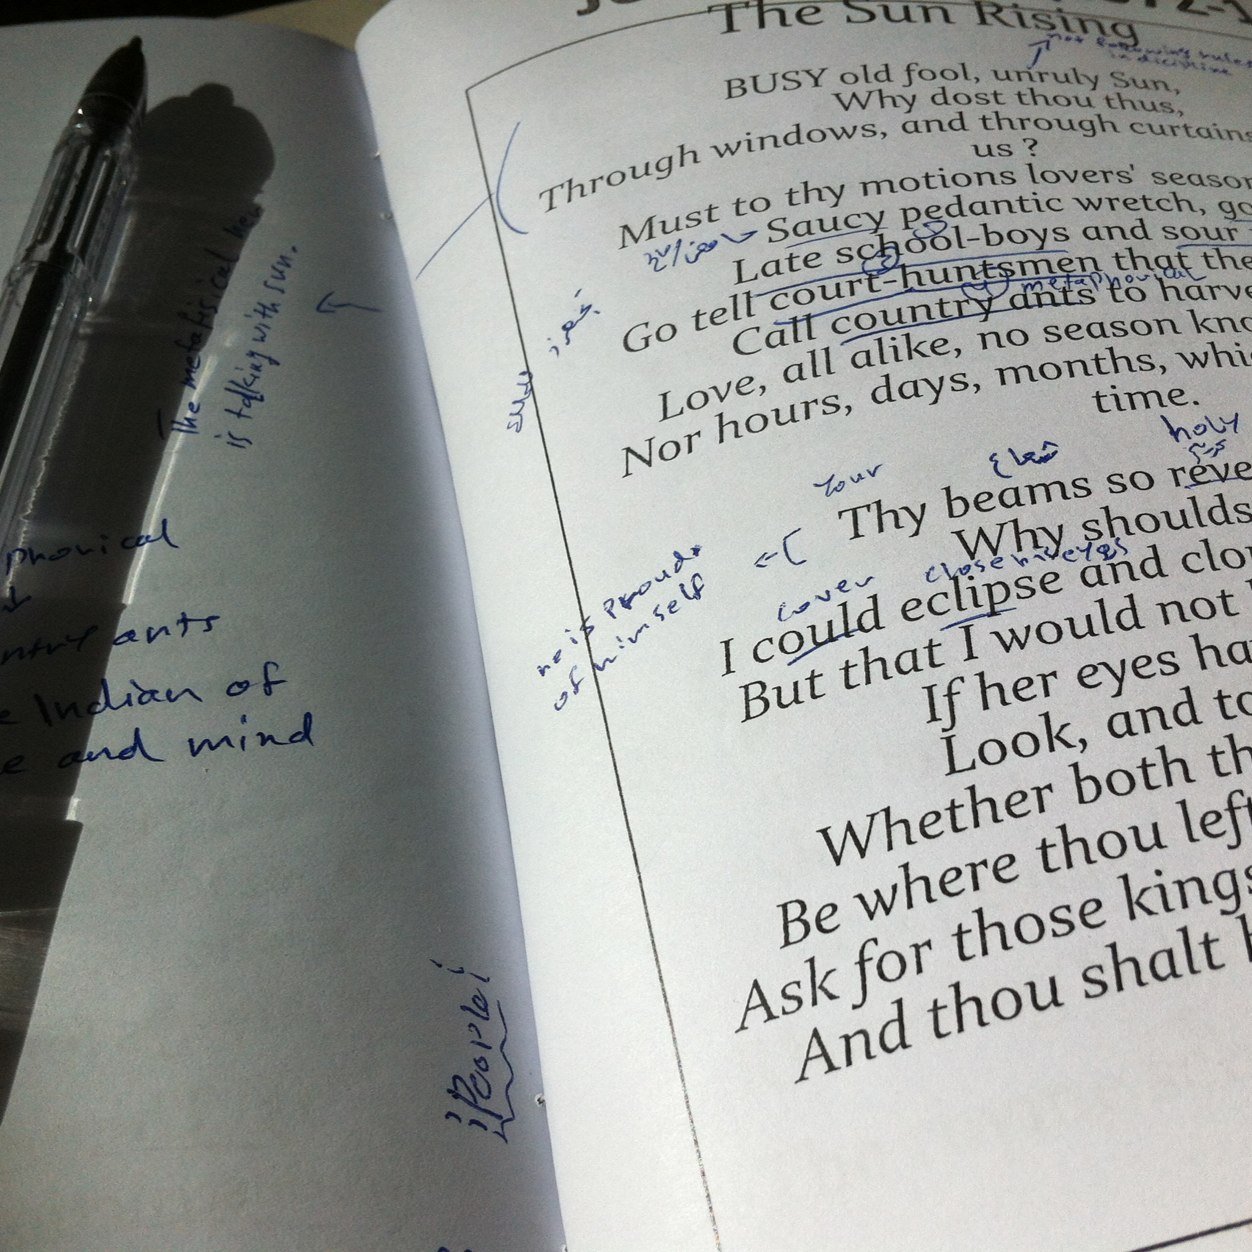 The Sun Rising
in
BUSY old fool, unruly Sun,
Why dost thou thus,
Through windows, and through curtains
us ?
Must to thy motions lovers' season
Saucy pedantic wretch, go
Late school-boys and sour
Go tell court-huntsmen that the
metaphorical
Call country ants to harve
Love, all alike, no season kno
Nor hours, days, months, whi
time.
holy
your
Thy beams so reve
Why shoulds
cover
close his eyes
I could eclipse and clou
But that I would not l
If her eyes ha
Look, and to
Whether both th
Be where thou left
Ask for those kings
And thou shalt h
he is proud
of himself
The
is talking with sun.
phorical
ntry ants
e Indian of
e and mind
People